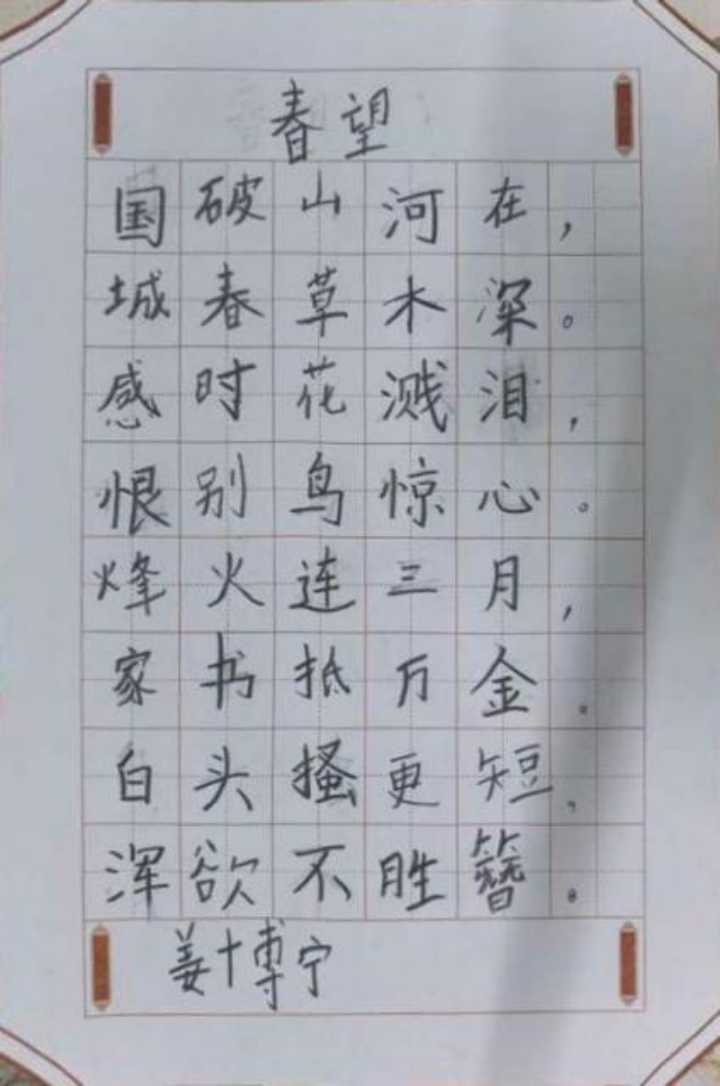 春望
国破山河在，
城春草木深。
感时花溅泪，
恨别鸟惊心。
烽火连三月，
家书抵万金.
白头搔更短，
浑欲不胜簪。
姜博宁